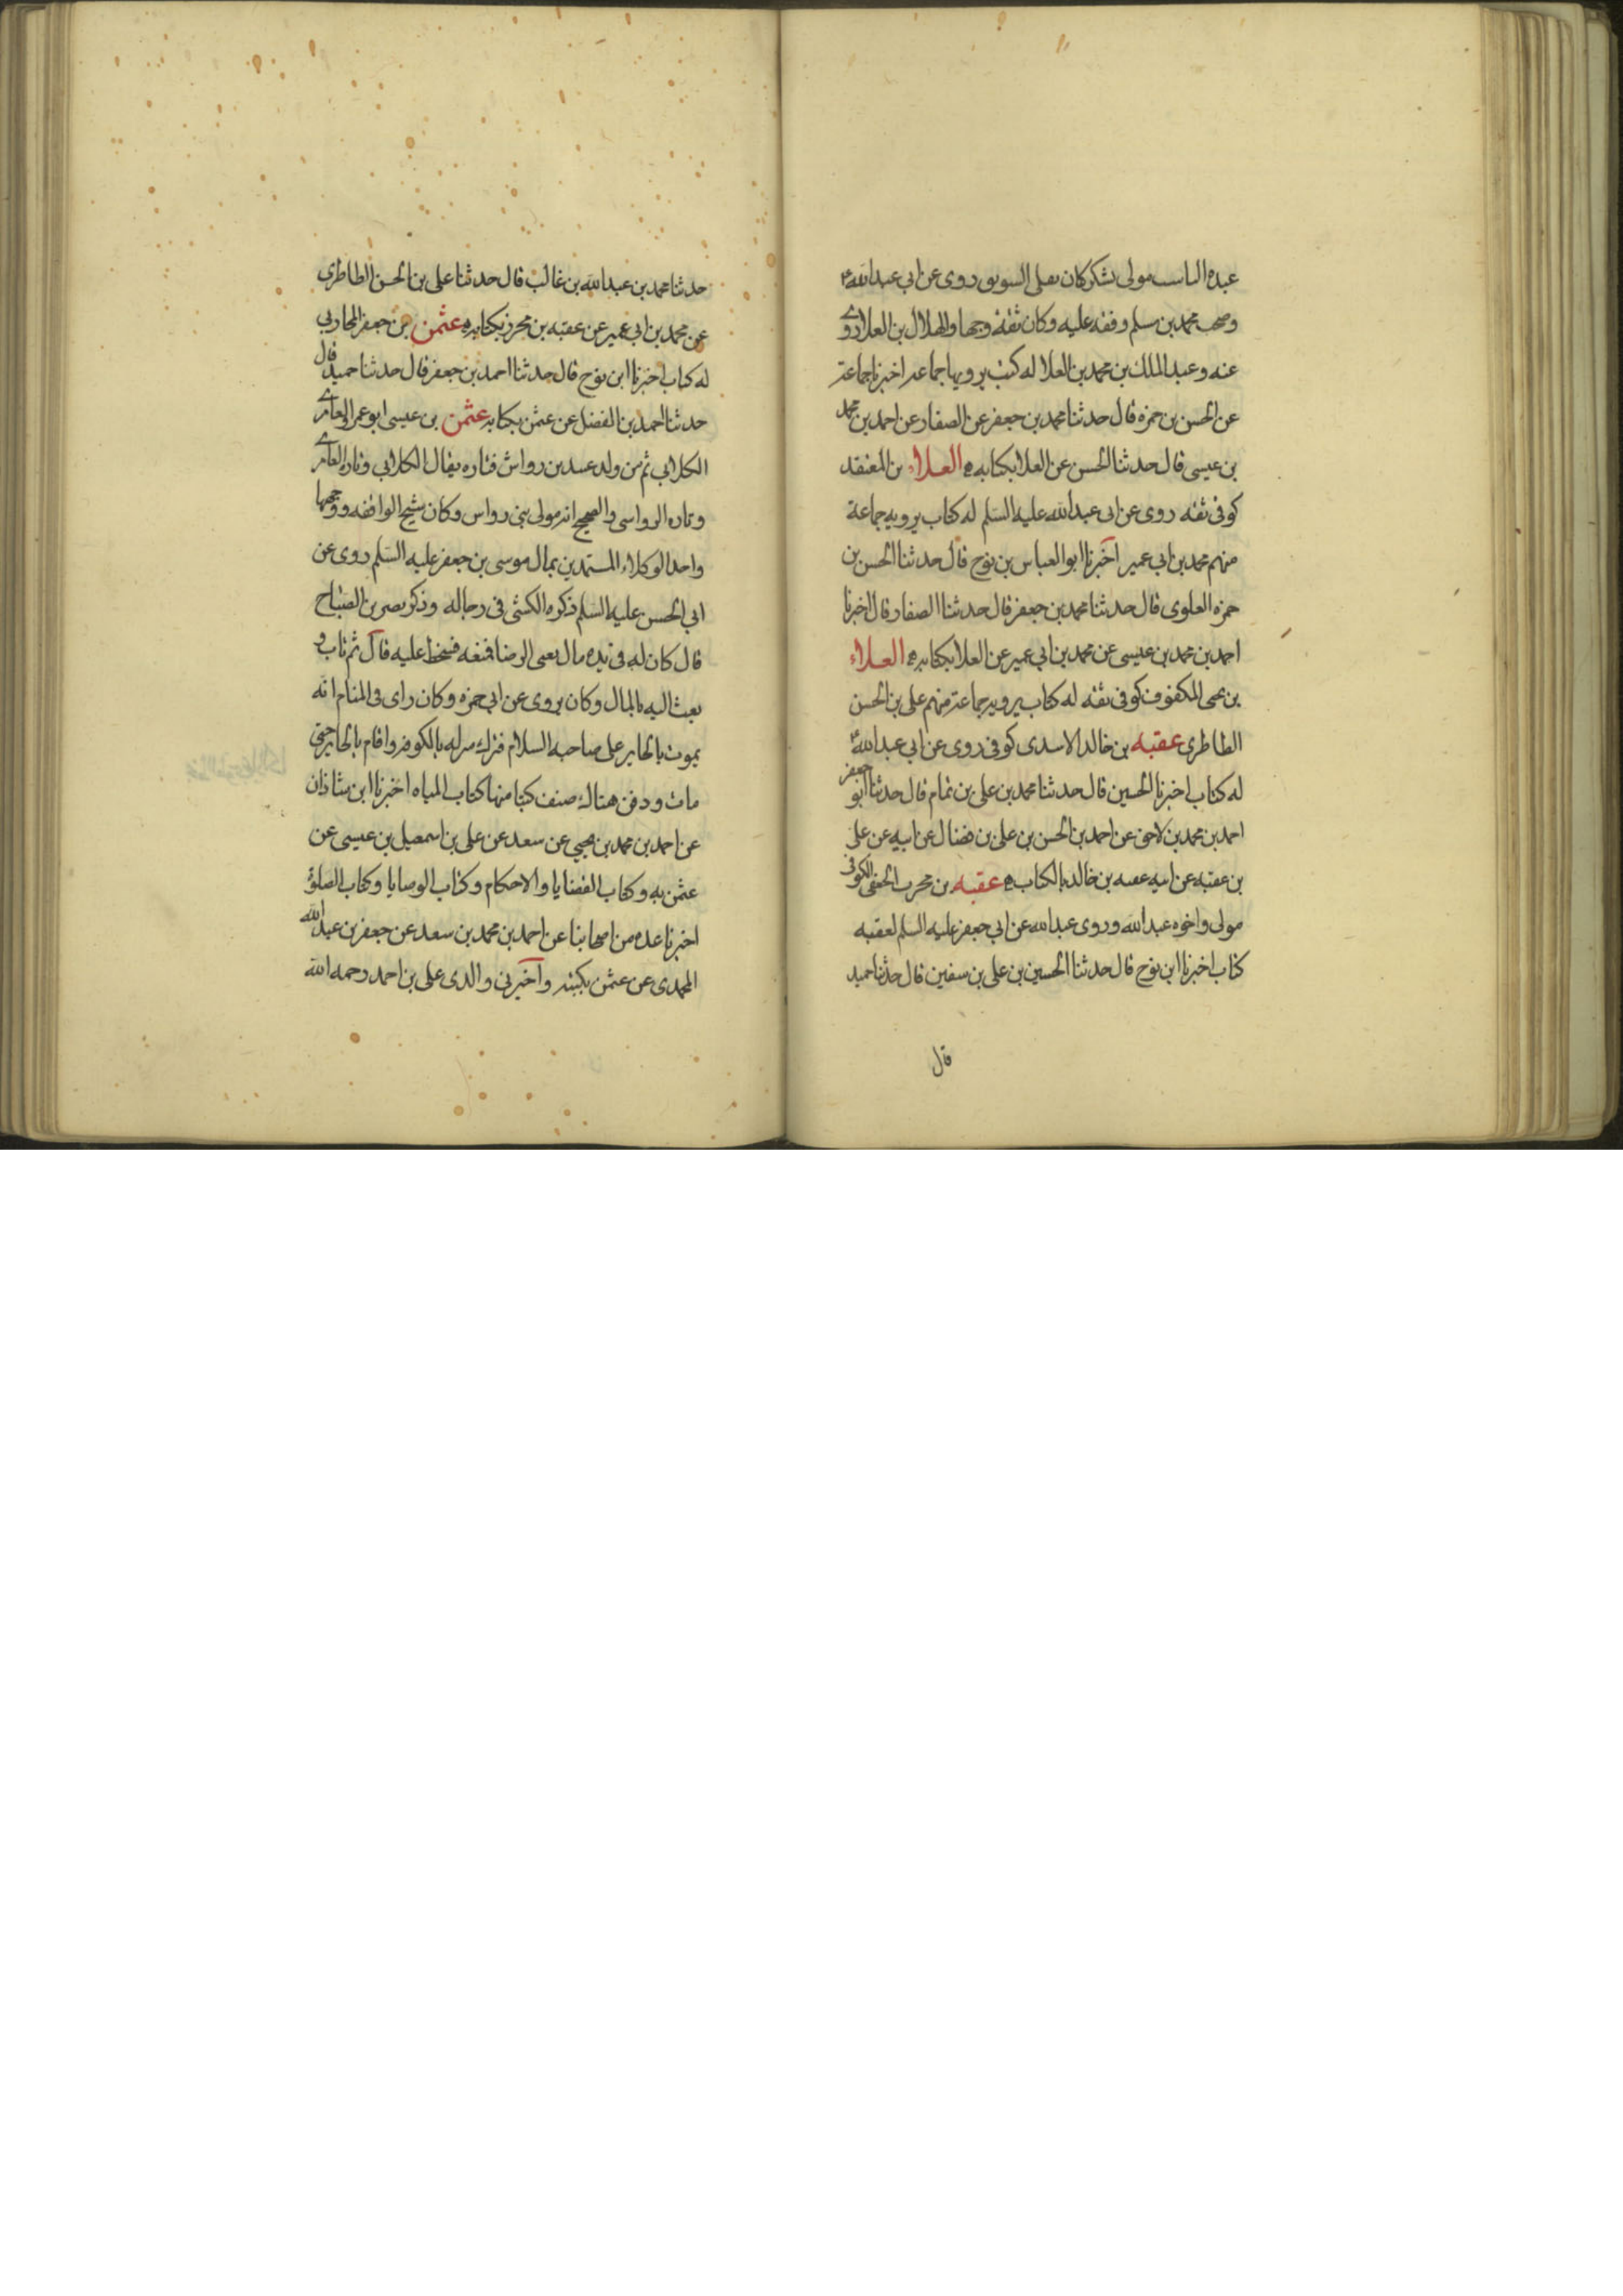 عبده الناسب مولى يشكر كان يقلى السويق روى عن ابى عبدالله ع
وصحب محمد بن مسلم وفقه عليه وكان ثقة وجها والهلال بن العلا روى
عنه وعبد الملك بن محمد بن العلا له كتب يرويها جماعة اخبرنا جماعة
عن الحسن بن حمزه قال حدثنا محمد بن جعفر عن الصفار عن احمد بن محمد
بن عيسى قال حدثنا الحسن عن العلا بكتابه العلاء بن المقعد
كوفى ثقه روى عن ابى عبدالله عليه السلم له كتاب يرويه جماعة
منهم محمد بن ابى عمير اخبرنا ابو العباس بن نوح قال حدثنا الحسن بن
حمزه العلوى قال حدثنا محمد بن جعفر قال حدثنا الصفار قال اخبرنا
احمد بن محمد بن عيسى عن محمد بن ابى عمير عن العلا بكتابه العلاء
بن يحيى المكفوف كوفى ثقه له كتاب يرويه جماعة منهم على بن الحسن
الطاطرى عقبه بن خالد الاسدى كوفى روى عن ابى عبدالله ع
له كتاب اخبرنا الحسين قال حدثنا محمد بن على بن تمام قال حدثنا ابو جعفر
احمد بن محمد بن لاحق عن احمد بن الحسن بن على بن فضال عن ابيه عن على
بن عقبه عن ابيه عقبه بن خالد بالكتاب عقبه بن محرب الجعفى الكوفى
مولى واخوه عبدالله وروى عبدالله عن ابى جعفر عليه السلم لعقبه
كتاب اخبرنا ابن نوح قال حدثنا الحسين بن على بن سفين قال حدثنا حميد
قال
حدثنا محمد بن عبدالله بن غالب قال حدثنا على بن الحسن الطاطرى
عن محمد بن ابى عمير عن عقبه بن محرز بكتابه عثمن بن جعفر المحاربى
له كتاب اخبرنا ابن نوح قال حدثنا احمد بن جعفر قال حدثنا حميد قال
حدثنا احمد بن الفضل عن عثمن بكتابه عثمن بن عيسى ابو عمرو العامرى
الكلابى ثم من ولد عبيد بن رواس فتاره يقال الكلابى وتاره العامرى
وتاره الرواسى والصحيح انه مولى بنى رواس وكان شيخ الواقفه ووجهها
واحد الوكلاء المستمدين بمال موسى بن جعفر عليه السلم روى عن
ابى الحسن عليه السلم ذكره الكشى فى رجاله وذكر نصر بن الصباح
قال كان له فى يده مال يعنى الرضا فمنعه فسخط عليه قال ثم تاب و
بعث اليه بالمال وكان يروى عن ابى حمزه وكان راى فى المنام انه
يموت بالحاير على صاحبه السلام فترك منزله بالكوفه واقام بالحاير حتى
مات ودفن هناك صنف كتبا منها كتاب المياه اخبرنا ابن شاذان
عن احمد بن محمد بن يحيى عن سعد عن على بن اسمعيل بن عيسى عن
عثمن به وكتاب القضايا والاحكام وكتاب الوصايا وكتاب الصلوة
اخبرنا عده من اصحابنا عن احمد بن محمد بن سعد عن جعفر بن عبدالله
المحمدى عن عثمن بكتبه واخبرنى والدى على بن احمد رحمه الله